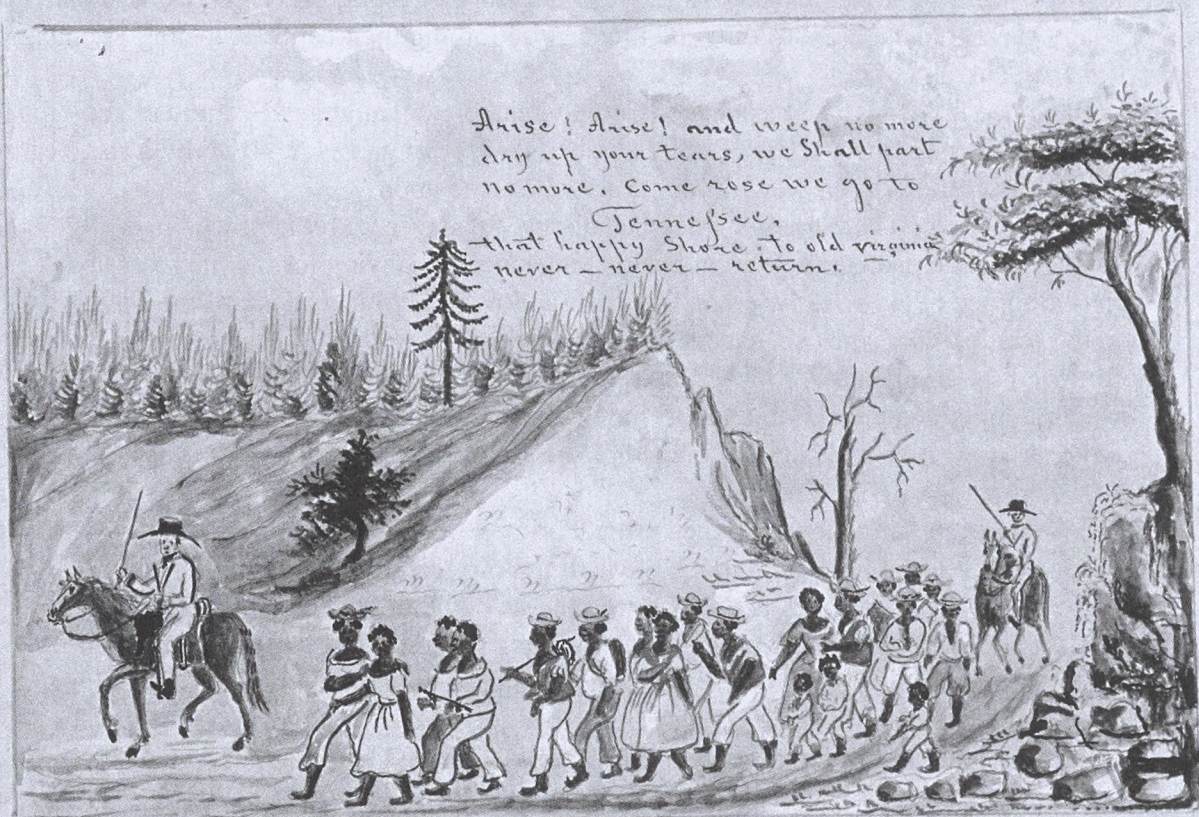 Arise! Arise! and weep no more
dry up your tears, we Shall part
no more. Come rose we go to
Tenneſsee,
that happy Shore to old virginia
never – never – return.